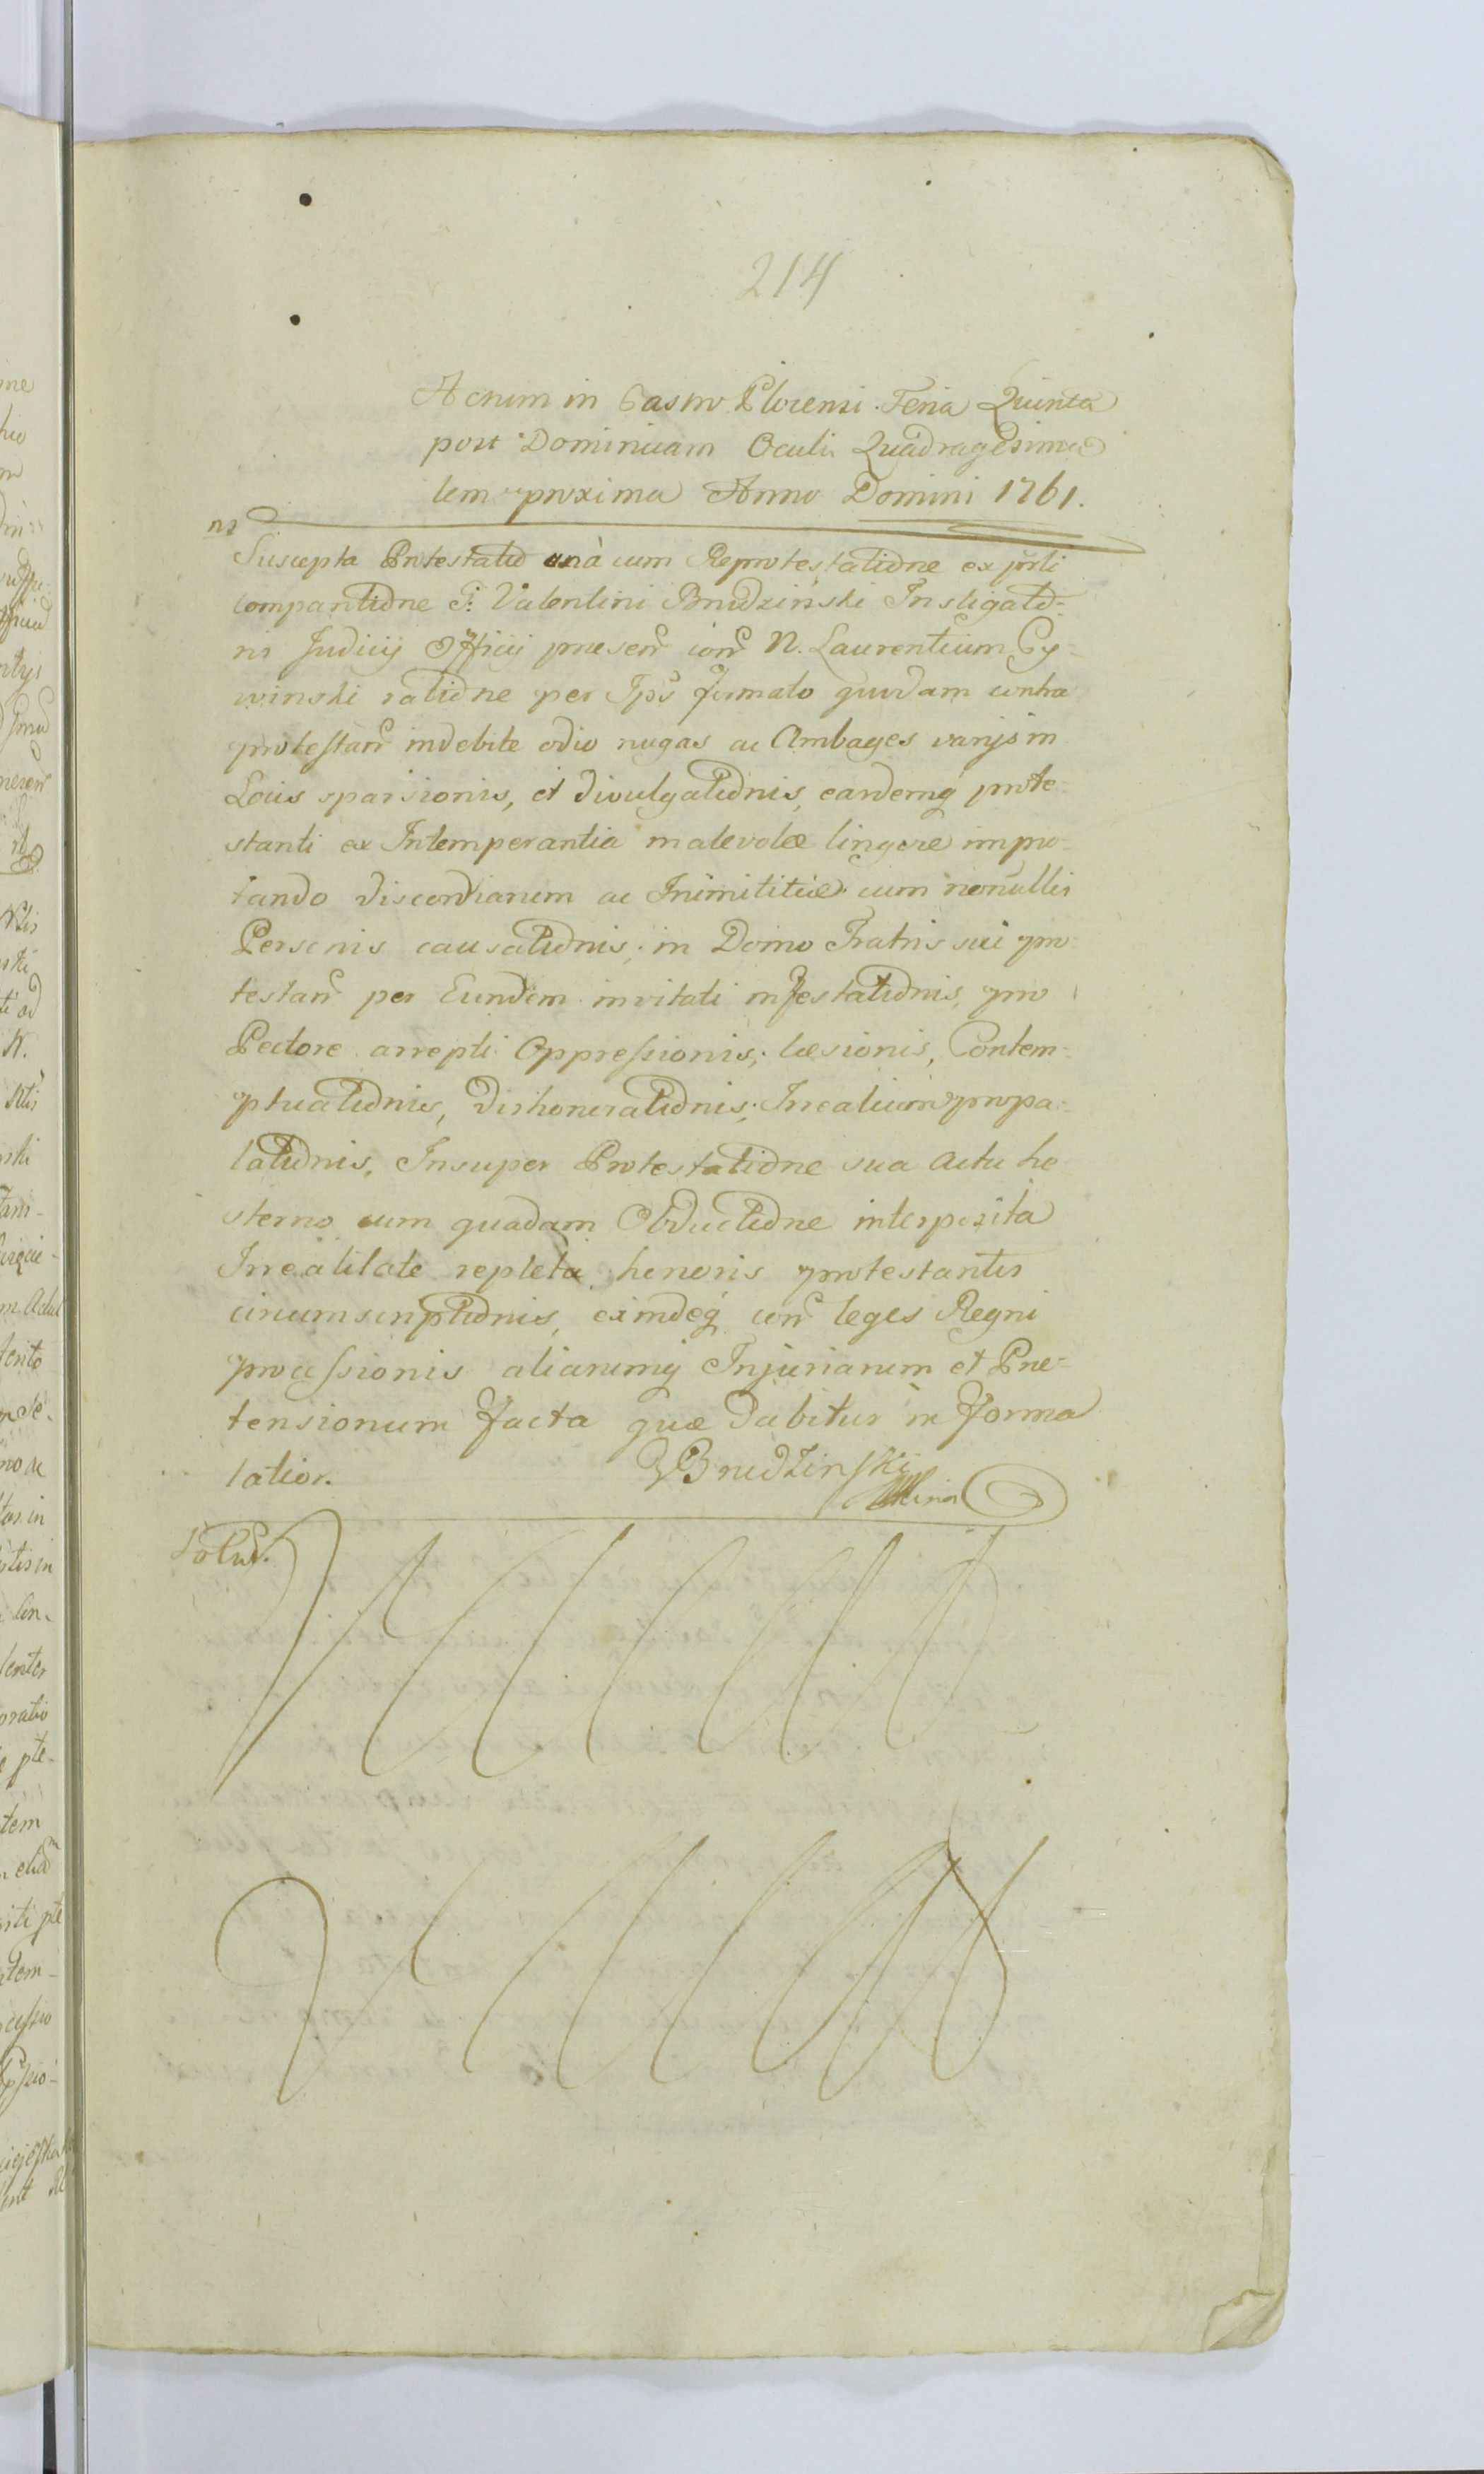 214
Actum in Castro Plocensi Feria Quinta
post Dominicam Oculi Quadragesima
lem proxima Anno Domini 1761.
Suscepta Protestatio unà cum Reprotestatione ex psñli
comparitione F: Valentini Brudzinski Instigato-
ris Judicij Officij presen con N. Laurentium Cy-
winski ratione per Ips formato quodam contra
protestan indebite odio nugas ac Ambages varijs in
Locis sparsionis, et divulgationis, eardemq prote-
stanti ex Intemperantia malevolæ linguæ impu-
tando discordiarum ac Inimititiæ cum nonullis
Personis causationis; in Domo Fratris sui pro-
testan per Eundem invitati infestationis, pro
Pectore arrepti Oppressionis; læsionis, Contem-
ptuationis, dishonorationis; Irrealium propa-
lationis, Insuper Protestatione sua Actu he
sterno cum quadam Obductione interposita
Irrealitate repleta honoris protestantis
circumscriptionis, exindeq con leges Regni
processionis aliarumq Injuriarum et Præ-
tensionum facta quæ dabitur in forma
latior. VBrudzinski
Solut.